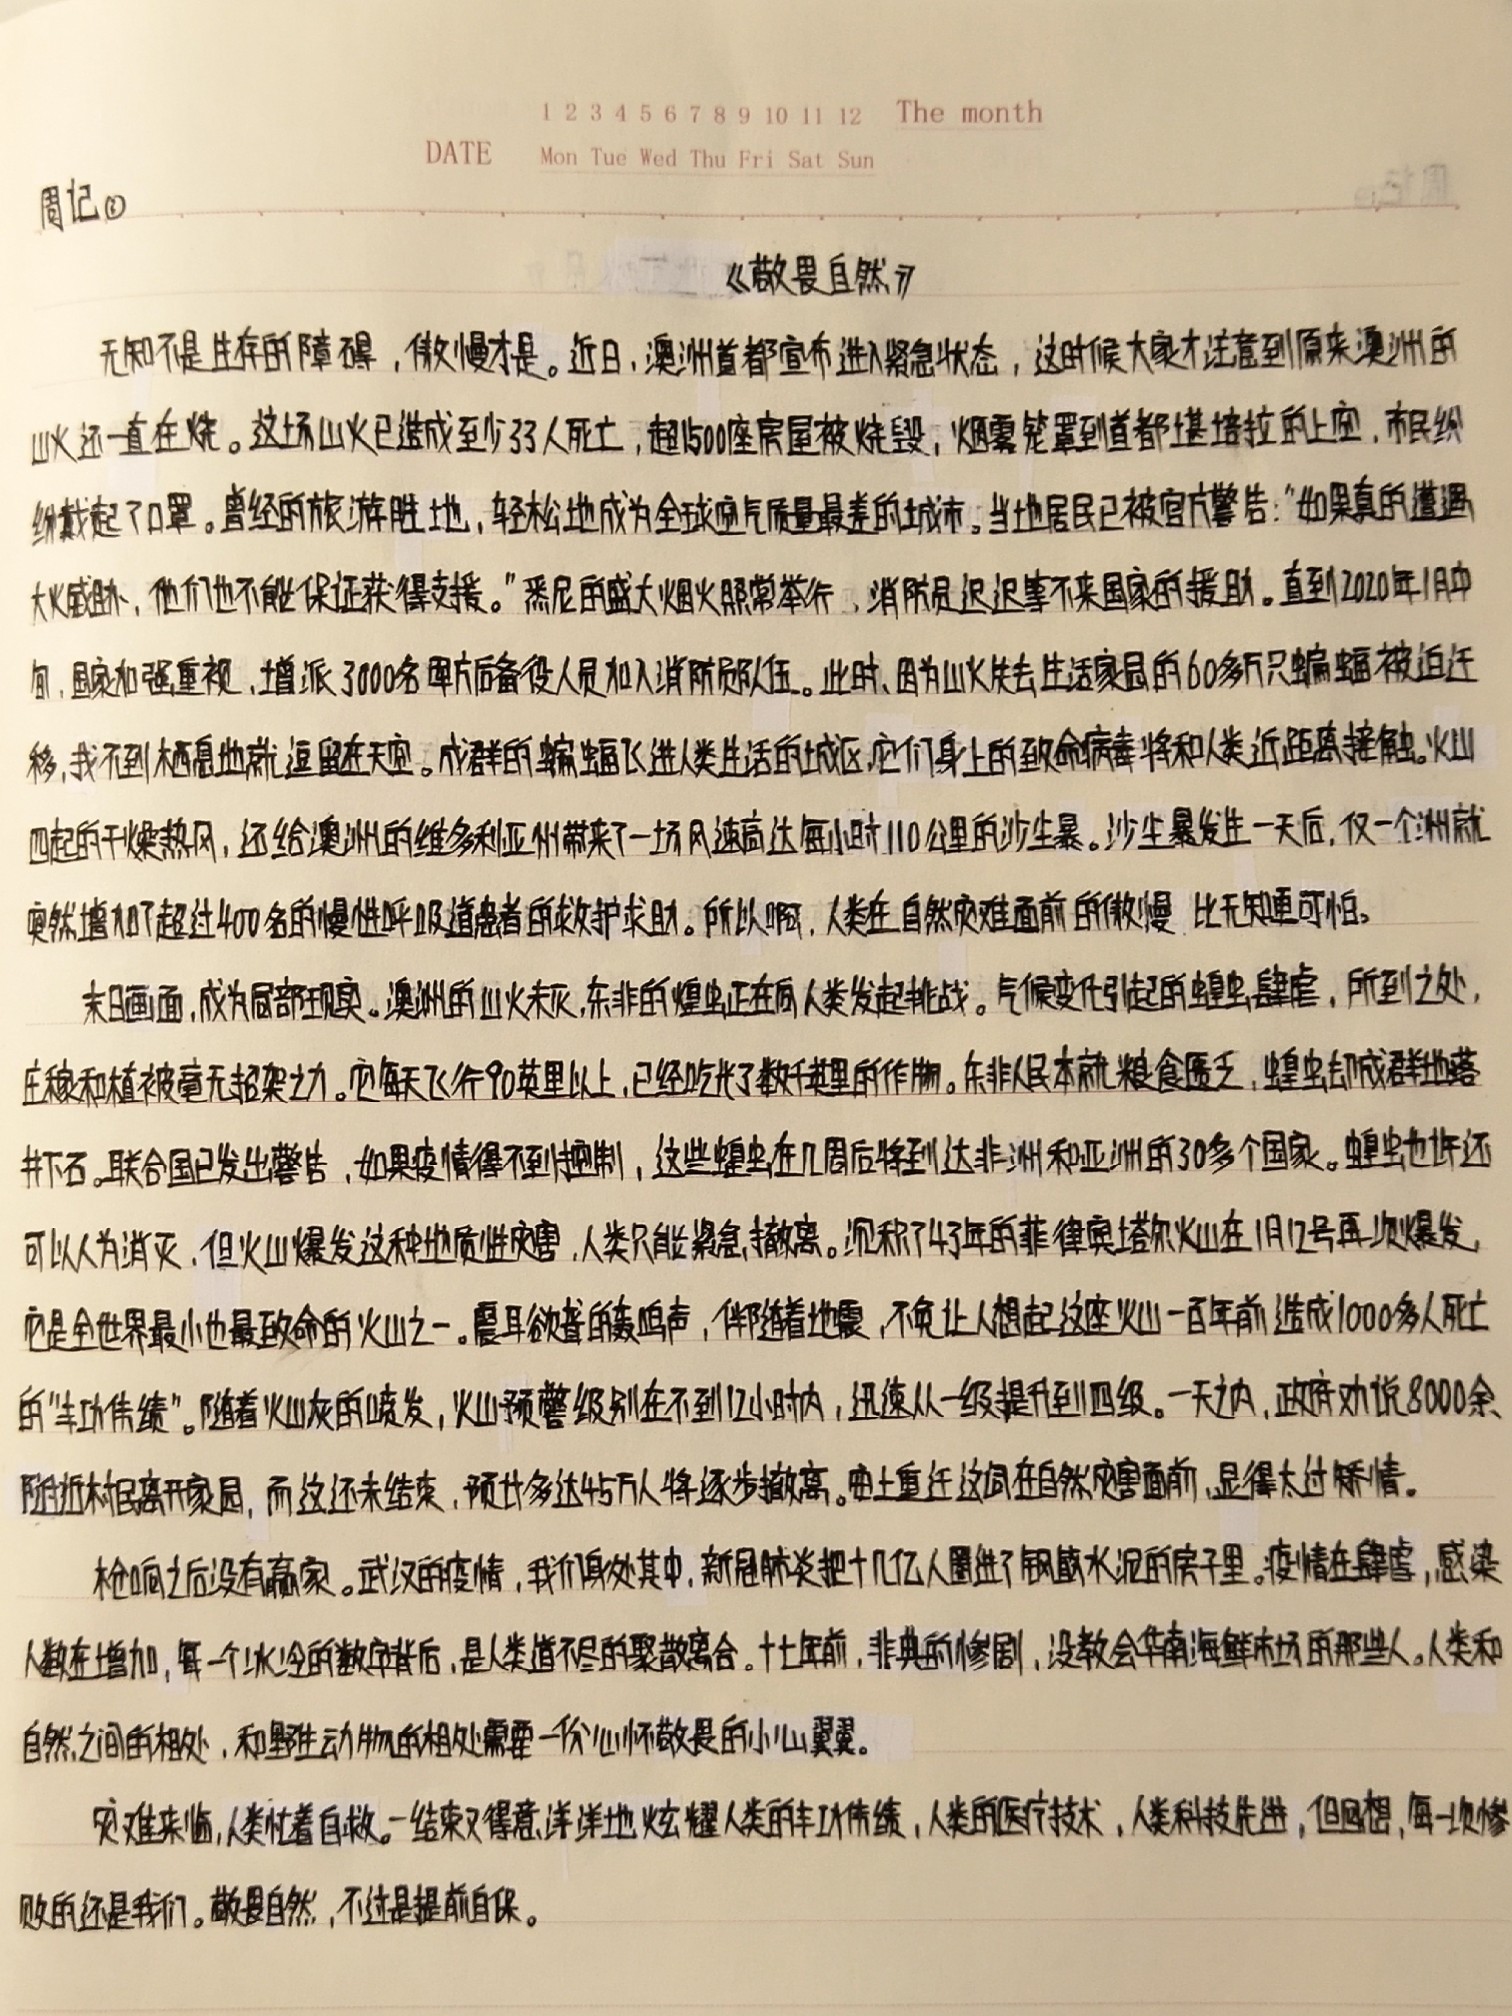 1 2 3 4 5 6 7 8 9 10 11 12 The month
DATE Mon Tue Wed Thu Fri Sat Sun
周记②
《敬畏自然》
无知不是生存的障碍，傲慢才是。近日，澳洲首都宣布进入紧急状态，这时候大家才注意到原来澳洲的
山火还一直在烧。这场山火已造成至少33人死亡，超1500座房屋被烧毁，烟雾笼罩到首都堪培拉的上空，市民纷
纷戴起了口罩。曾经的旅游胜地，轻松地成为全球空气质量最差的城市。当地居民已被官方警告："如果真的遭遇
大火威胁，他们也不能保证获得支援。"悉尼的盛大烟火照常举行，消防员迟迟等不来国家的援助。直到2020年1月中
旬，国家加强重视，增派3000名军方后备役人员加入消防员队伍。此时，因为山火失去生活家园的60多万只蝙蝠被迫迁
移，找不到栖息地就逗留在天空。成群的蝙蝠飞进人类生活的城区，它们身上的致命病毒将和人类近距离接触。火山
四起的干燥热风，还给澳洲的维多利亚州带来了一场风速高达每小时110公里的沙尘暴。沙尘暴发生一天后，仅一个洲就
突然增加了超过400名的慢性呼吸道患者的救护求助。所以啊，人类在自然灾难面前的傲慢 比无知更可怕。
末日画面，成为局部现实。澳洲的山火未灭，东非的蝗虫正在向人类发起挑战。气候变化引起的蝗虫肆虐，所到之处，
庄稼和植被毫无招架之力。它每天飞行90英里以上，已经吃光了数千英里的作物。东非人民本就粮食匮乏，蝗虫却成群地落
井下石。联合国已发出警告，如果疫情得不到控制，这些蝗虫在几周后将到达非洲和亚洲的30多个国家。蝗虫也许还
可以人为消灭，但火山爆发这种地质性灾害，人类只能紧急撤离。沉积了43年的菲律宾塔尔火山在1月12号再次爆发，
它是全世界最小也最致命的火山之一。震耳欲聋的轰鸣声，伴随着地震，不免让人想起这座火山一百年前造成1000多人死亡
的"丰功伟绩"。随着火山灰的喷发，火山预警级别在不到12小时内，迅速从一级提升到四级。一天之内，政府劝说8000余
附近村民离开家园，而这还未结束，预计多达45万人将逐步撤离。安土重迁这词在自然灾害面前，显得太过矫情。
枪响之后没有赢家。武汉的疫情，我们身处其中，新冠肺炎把十几亿人圈进了钢筋水泥的房子里。疫情在肆虐，感染
人数在增加，每一个冰冷的数字背后，是人类道不尽的聚散离合。十七年前，非典的惨剧，没教会华南海鲜市场的那些人。人类和
自然之间的相处，和野生动物的相处需要一份心怀敬畏的小心翼翼。
灾难来临，人类忙着自救。一结束又得意洋洋地炫耀人类的丰功伟绩，人类的医疗技术，人类科技先进，但回想，每一次惨
败的还是我们。敬畏自然，不过是提前自保。